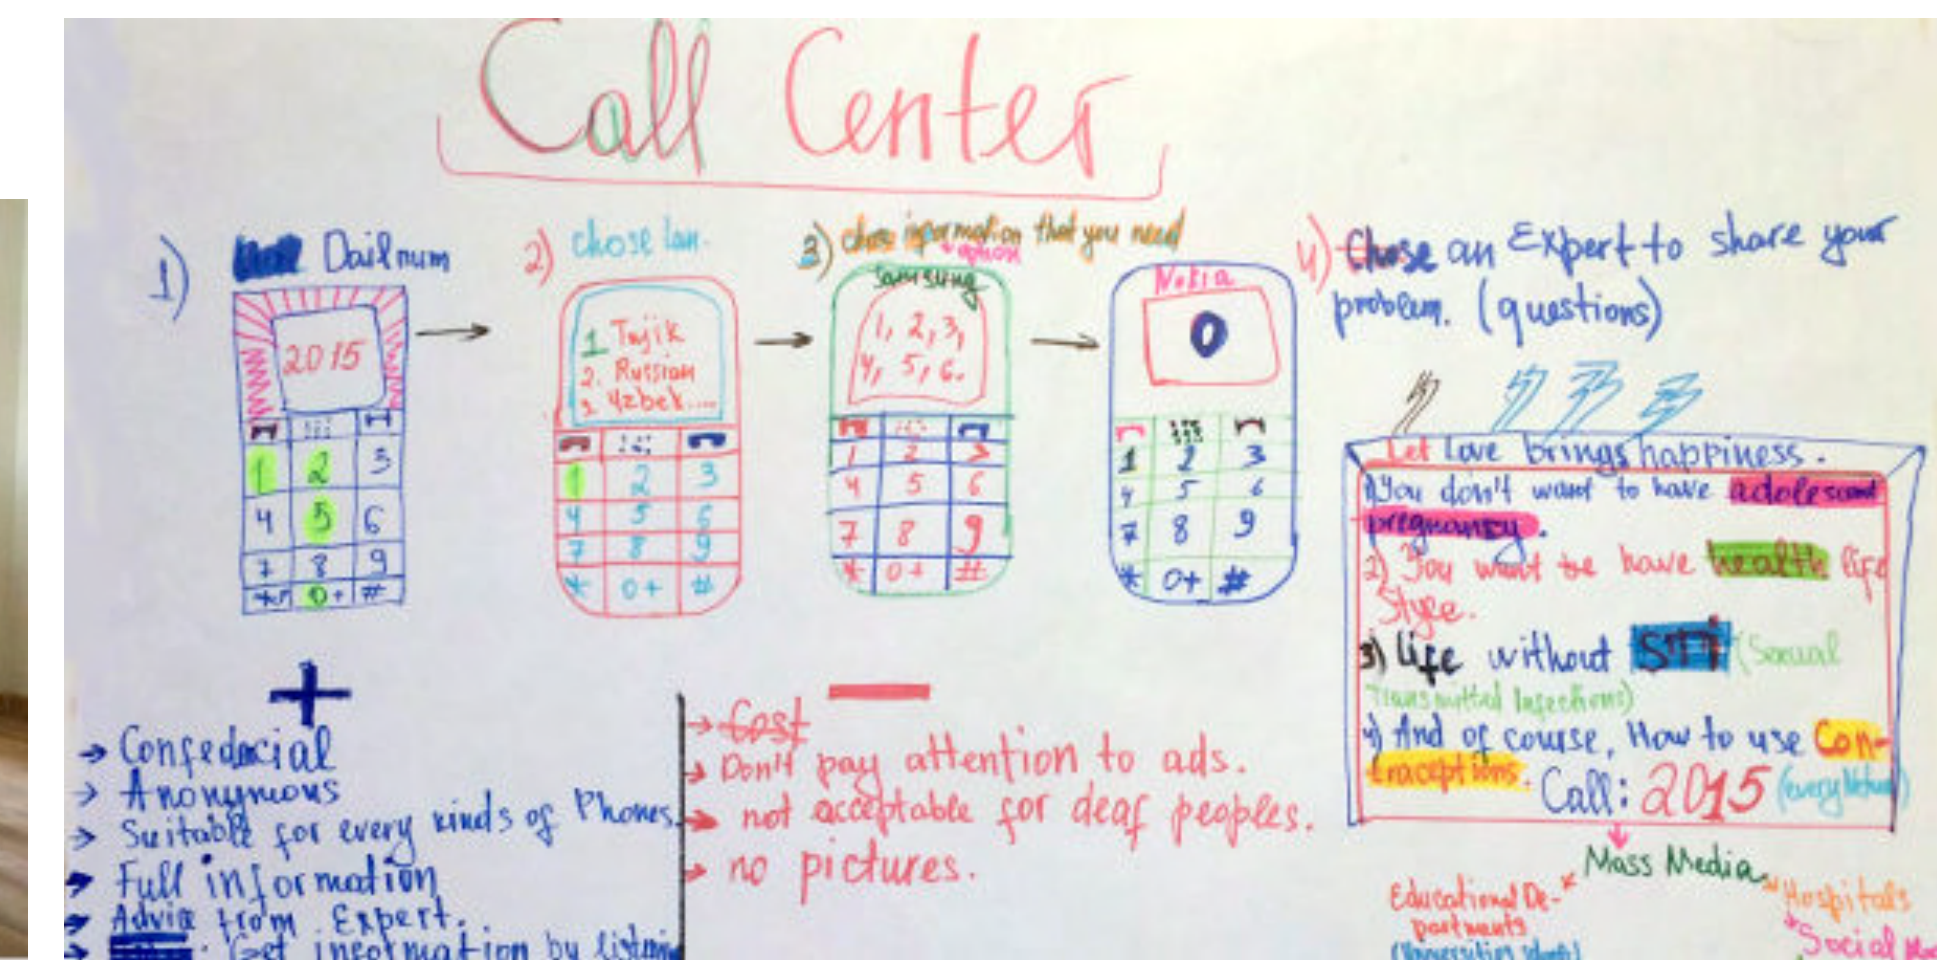 Call Center
1) Dailnum
2015
1 2 3
4 5 6
7 8 9
0+ #
2) chose lan.
1 Tajik
2. Russian
3. Uzbek....
1 2 3
4 5 6
7 8 9
* 0+ #
3) chose information that you need
+ option
Samsung
1, 2, 3,
4, 5, 6.
1 2 3
4 5 6
7 8 9
* 0+ #
Nokia
0
1 2 3
4 5 6
7 8 9
* 0+ #
4) Chose an Expert to share your
problem. (questions)
Let Love brings happiness.
1) You don't want to have adolescent
pregnancy.
2) You want to have health life
Style.
3) life without STI (Sexual
Transmitted Infections)
4) And of course, How to use Con-
traceptions.
Call: 2015 (every
Mass Media
Educational De-
partments
Hospitals
Social
+
→ Confedacial
→ Anonymous
→ Suitable for every kinds of Phones.
→ Full information
→ Advice from Expert.
→ Get information by listening
−
→ Cost
→ Don't pay attention to ads.
→ not acceptable for deaf peoples.
→ no pictures.